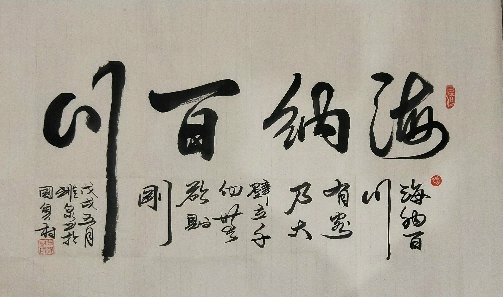 海纳百川
海纳百
川
有容
乃大
壁立千
仞無
欲則
剛
戊戌五月